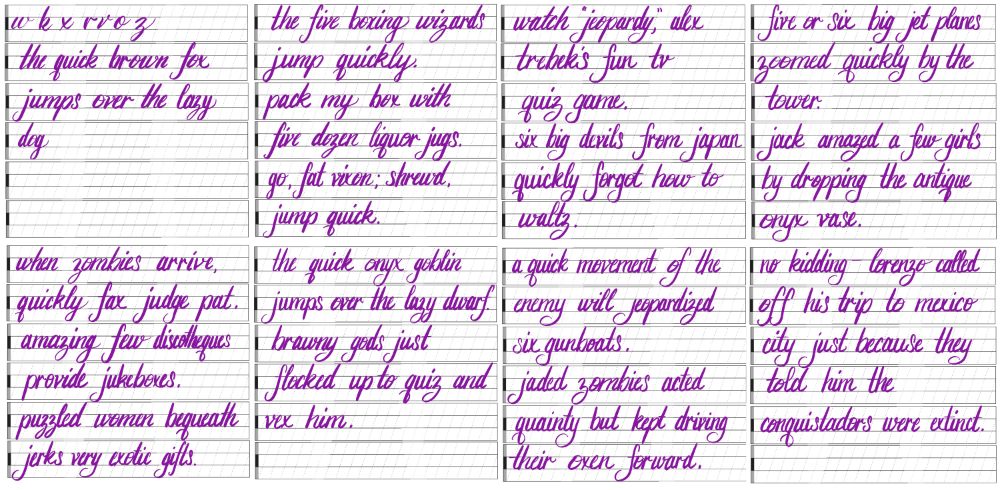 w k x r v o z
the quick brown fox
jumps over the lazy
dog
the five boxing wizards
jump quickly.
pack my box with
five dozen liquor jugs.
go, fat vixon; shrewd,
jump quick.
watch "jeopardy," alex
trebek's fun tv
quiz game.
six big devils from japan
quickly forgot how to
waltz.
five or six big jet planes
zoomed quickly by the
tower.
jack amazed a few girls
by dropping the antique
onyx vase.
when zombies arrive,
quickly fax judge pat.
amazing few discotheques
provide jukeboxes.
puzzled women bequeath
jerks very exotic gifts.
the quick onyx goblin
jumps over the lazy dwarf.
brawny gods just
flocked up to quiz and
vex him.
a quick movement of the
enemy will jeopardized
six gunboats.
jaded zombies acted
quainty but kept driving
their oxen forward.
no kidding—lorenzo called
off his trip to mexico
city just because they
told him the
conquistadors were extinct.